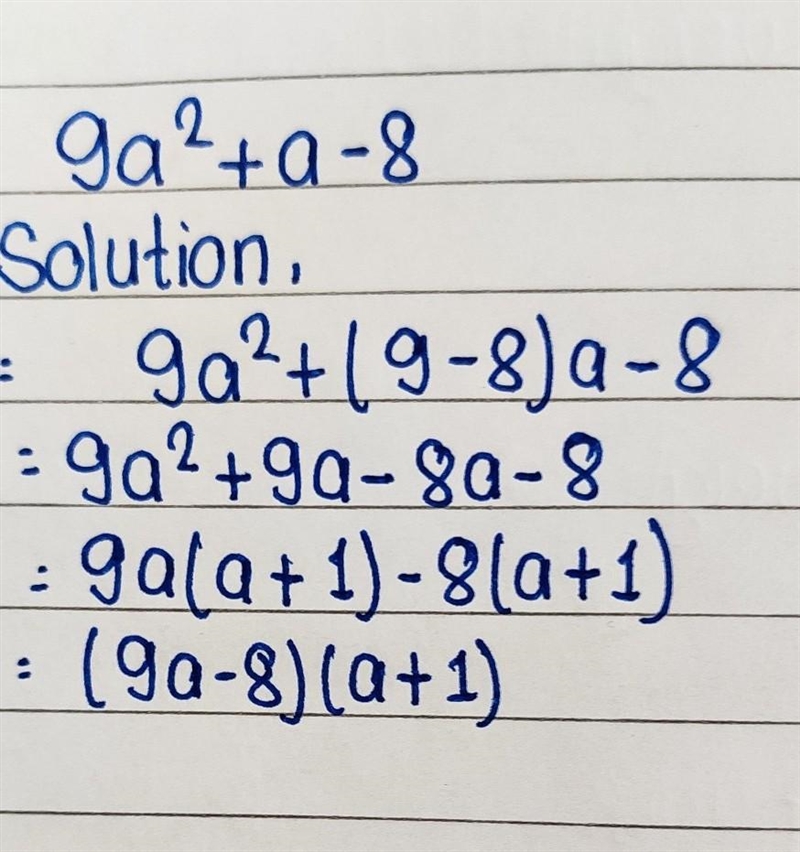 9a²+a-8
Solution,
= 9a²+(9-8)a-8
= 9a²+9a-8a-8
= 9a(a+1)-8(a+1)
= (9a-8)(a+1)